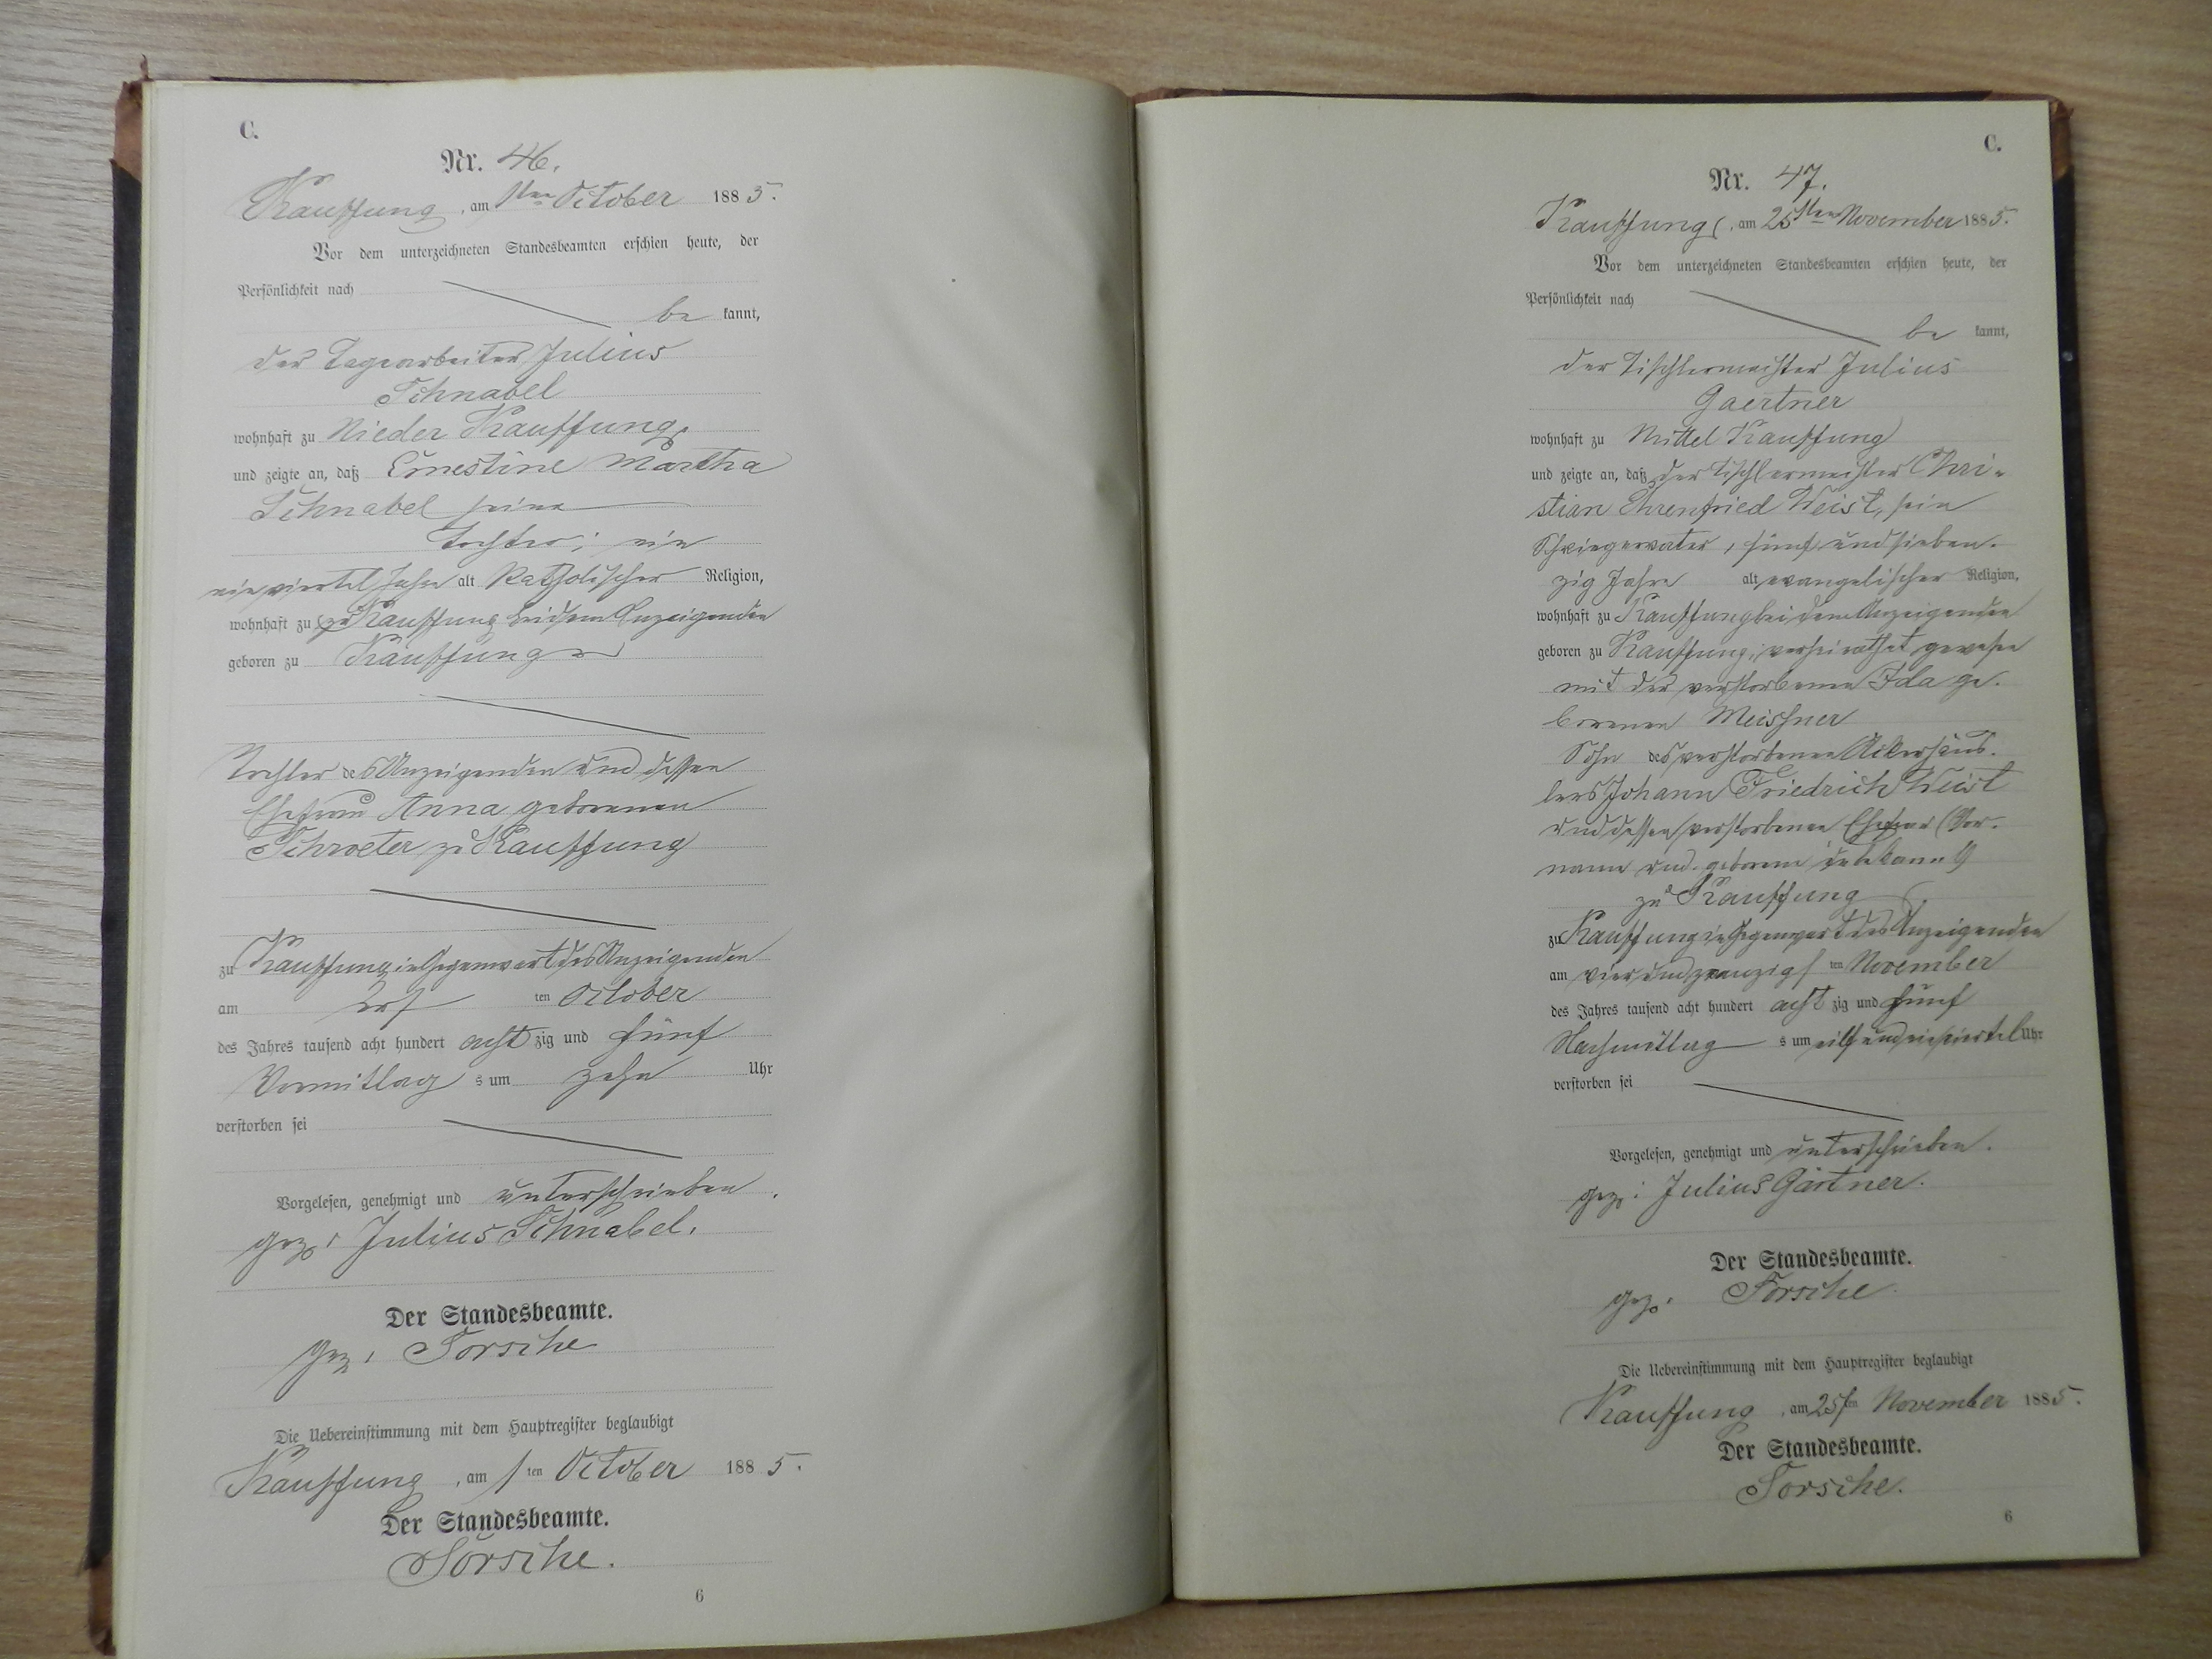 C.
Nr. 46.
Kauffung, am 1ten October 1885.
Vor dem unterzeichneten Standesbeamten erschien heute, der
Persönlichkeit nach
be kannt,
der Tagearbeiter Julius
Schnabel
wohnhaft zu Nieder Kauffung
und zeigte an, daß Ernestine Martha
Schnabel seine
Tochter; ein
ein viertel Jahr alt katholischer Religion,
wohnhaft zu Kauffung bei dem Anzeigenden
geboren zu Kauffung
Tochter des Anzeigenden und dessen
Ehefrau Anna geborenen
Schroeter zu Kauffung
zu Kauffung in Gegenwart des Anzeigenden
am ers ten October
des Jahres tausend acht hundert acht zig und fünf
Vormittag s um zehn Uhr
verstorben sei
Vorgelesen, genehmigt und unterschrieben.
gez: Julius Schnabel.
Der Standesbeamte.
gez: Forsche
Die Uebereinstimmung mit dem Hauptregister beglaubigt
Kauffung, am 1 ten October 1885.
Der Standesbeamte.
Forsche.
6
C.
Nr. 47.
Kauffung, am 25sten November 1885.
Vor dem unterzeichneten Standesbeamten erschien heute, der
Persönlichkeit nach
be kannt,
der Tischlermeister Julius
Gaertner
wohnhaft zu Mittel Kauffung
und zeigte an, daß der Tischlermeister Chri-
stian Ehrenfried Weist, sein
Schwiegervater, fünf und sieben-
zig Jahre alt evangelischer Religion,
wohnhaft zu Kauffung bei dem Anzeigenden
geboren zu Kauffung, verheirathet gewesen
mit der verstorbenen Ida ge-
borenen Meissner
Sohn des verstorbenen Ackerhäus-
lers Johann Friedrich Weist
und dessen verstorbenen Ehefrau (Vor-
name und geborene unbekannt)
zu Kauffung
zu Kauffung in Gegenwart des Anzeigenden
am vier und zwanzigs ten November
des Jahres tausend acht hundert acht zig und fünf
Nachmittag s um eilf und ein viertel Uhr
verstorben sei
Vorgelesen, genehmigt und unterschrieben.
gez: Julius Gärtner.
Der Standesbeamte.
gez: Forsche
Die Uebereinstimmung mit dem Hauptregister beglaubigt
Kauffung, am 25sten November 1885.
Der Standesbeamte.
Forsche.
6